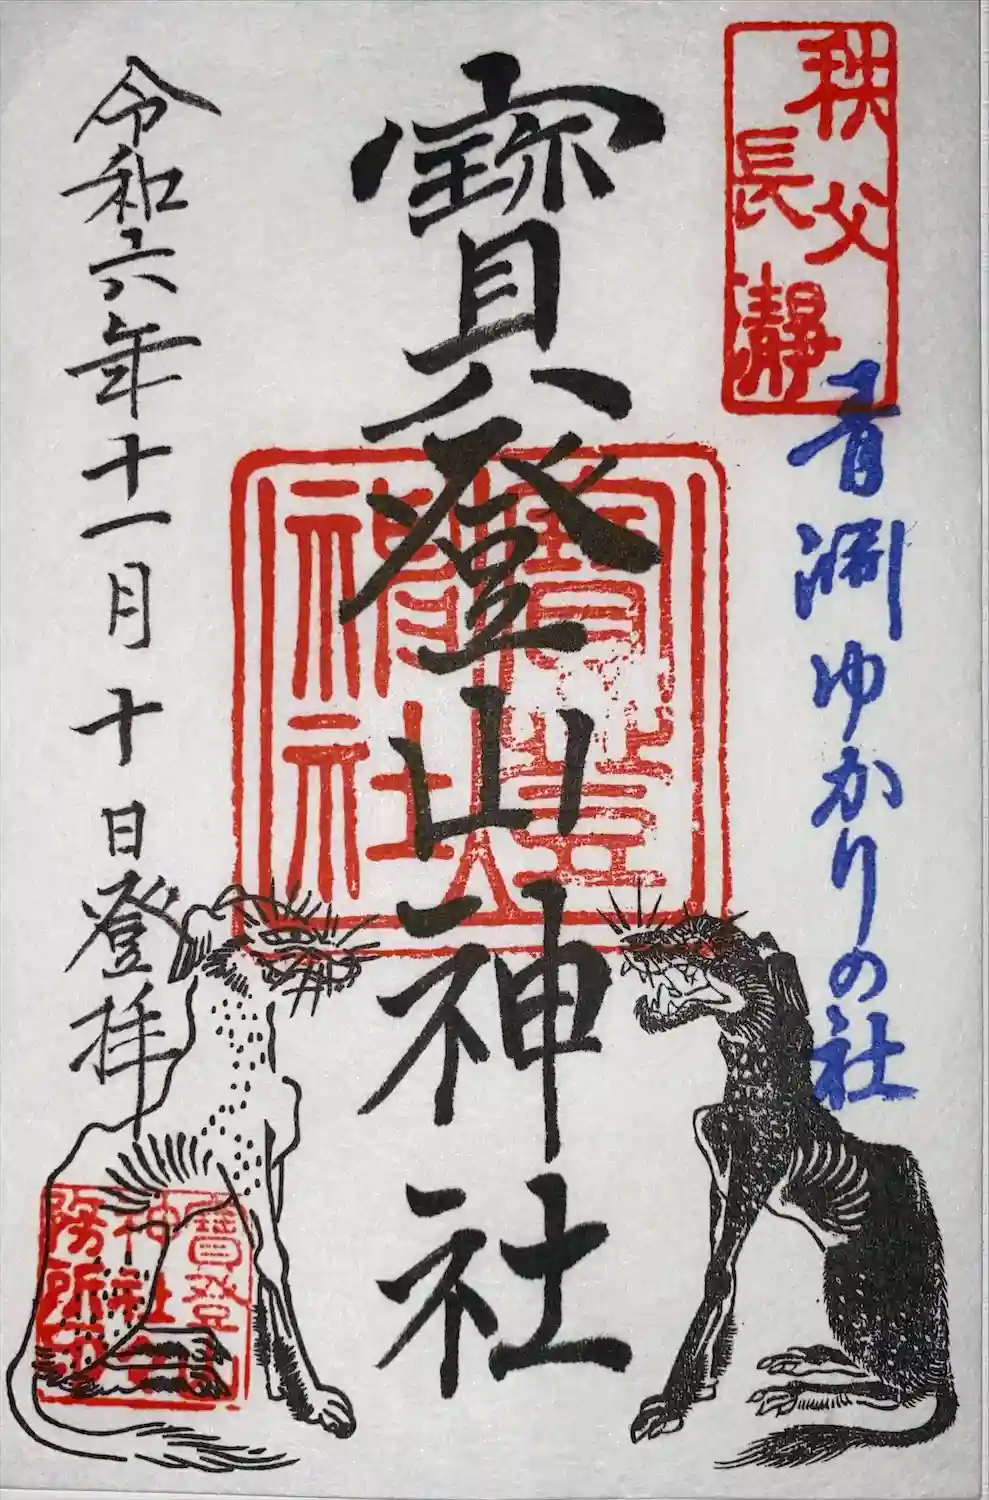 秩父
長瀞
青淵ゆかりの社
寳登山神社
寳登山
神社
令和六年十一月十日登拝
寳登山
神社社
務所印